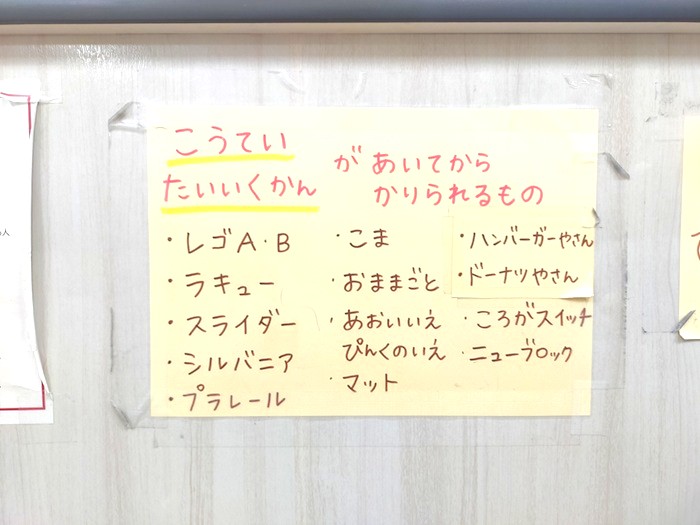 こうてい
たいいくかん
が あいてから
かりられるもの
・レゴA・B
・ラキュー
・スライダー
・シルバニア
・プラレール
・こま
・おままごと
・あおいいえ
ぴんくのいえ
・マット
・ハンバーガーやさん
・ドーナツやさん
・ころがスイッチ
・ニューブロック
人